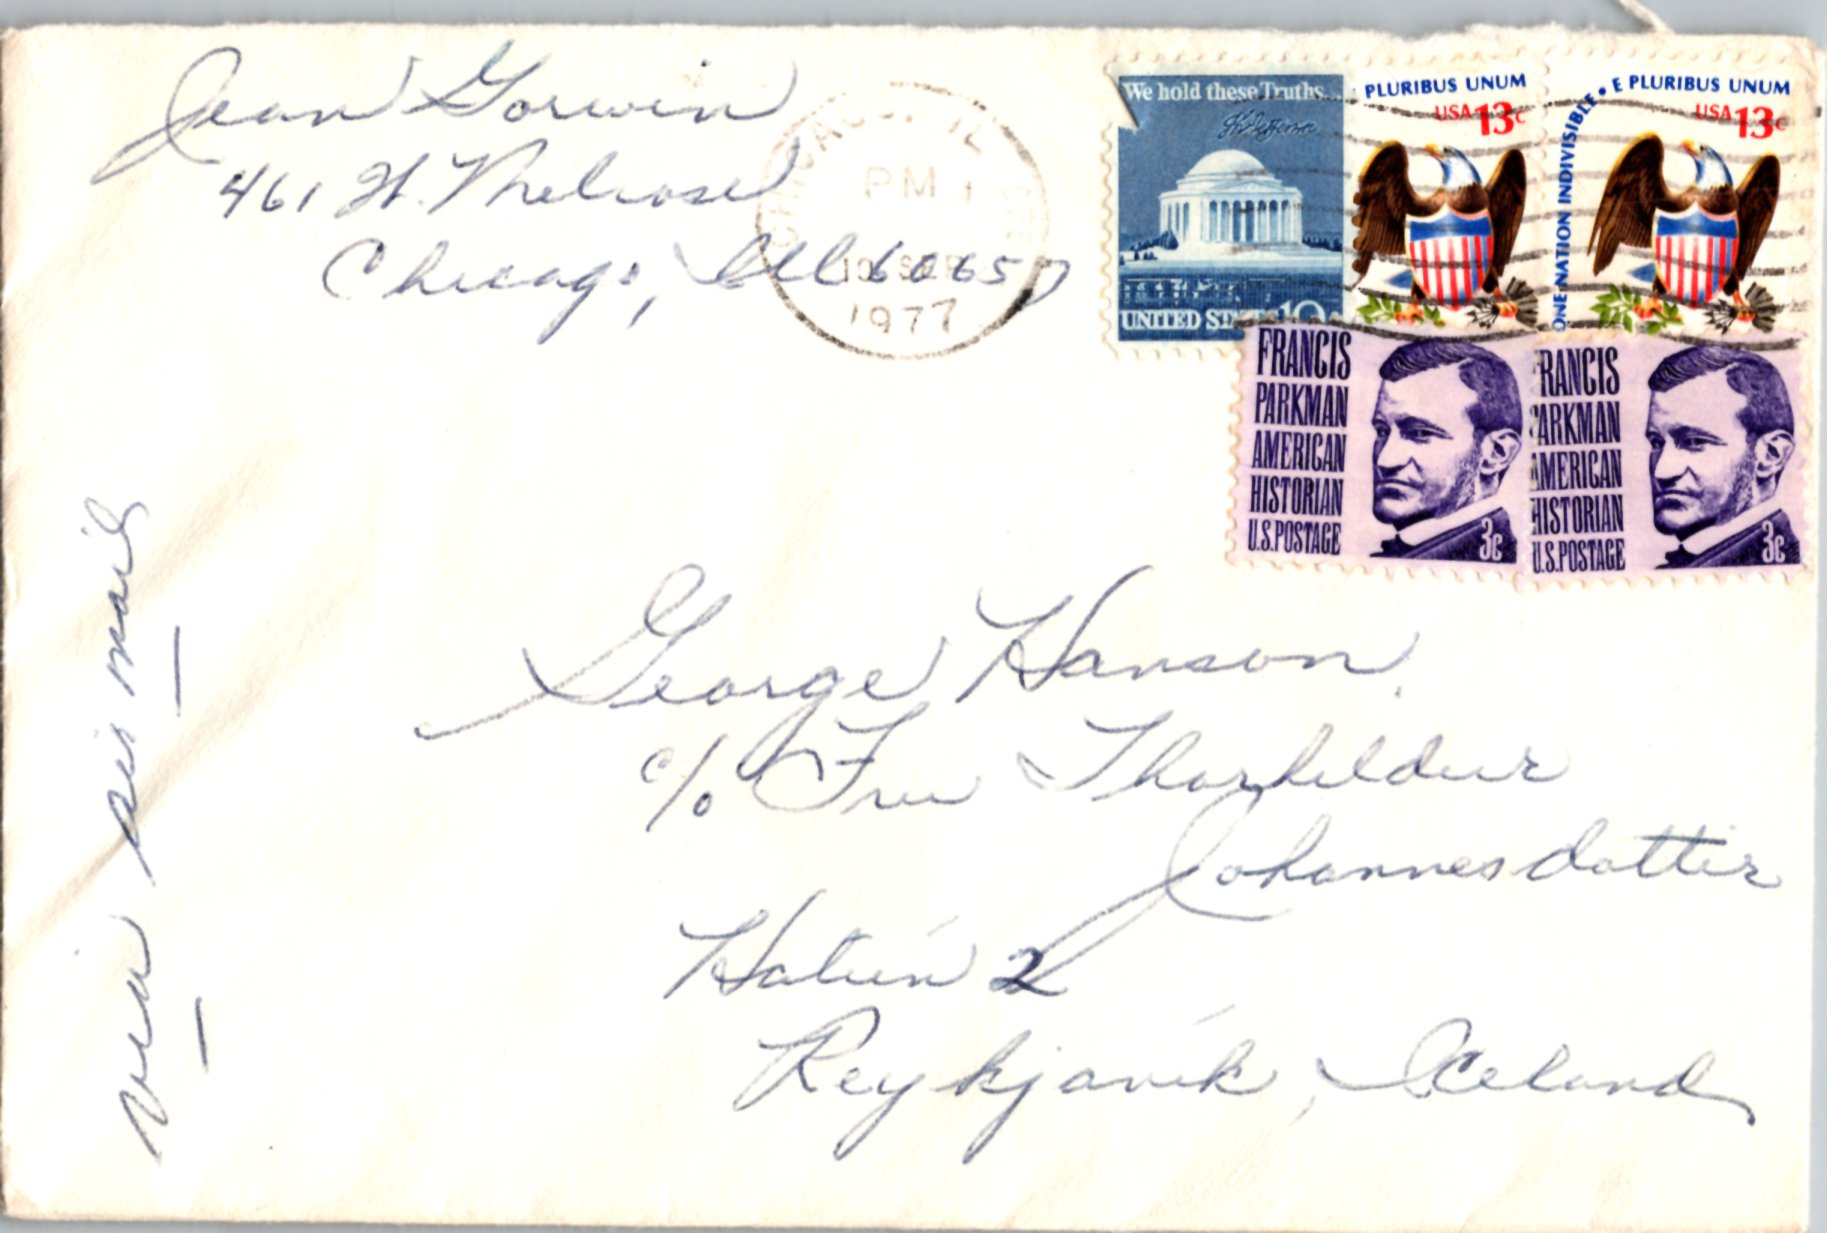 Jean Gorwin
461 W. Melrose
Chicago, Ill 60657
CHICAGO, IL
PM
10 SEP
1977
We hold these Truths...
UNITED STATES 10c
E PLURIBUS UNUM
USA 13c
ONE NATION INDIVISIBLE • E PLURIBUS UNUM
USA 13c
FRANCIS
PARKMAN
AMERICAN
HISTORIAN
U.S. POSTAGE
3c
FRANCIS
PARKMAN
AMERICAN
HISTORIAN
U.S. POSTAGE
3c
via air mail
George Hanson
c/o Fru Thorhildur
Johannesdottir
Hatún 2
Reykjavík, Iceland